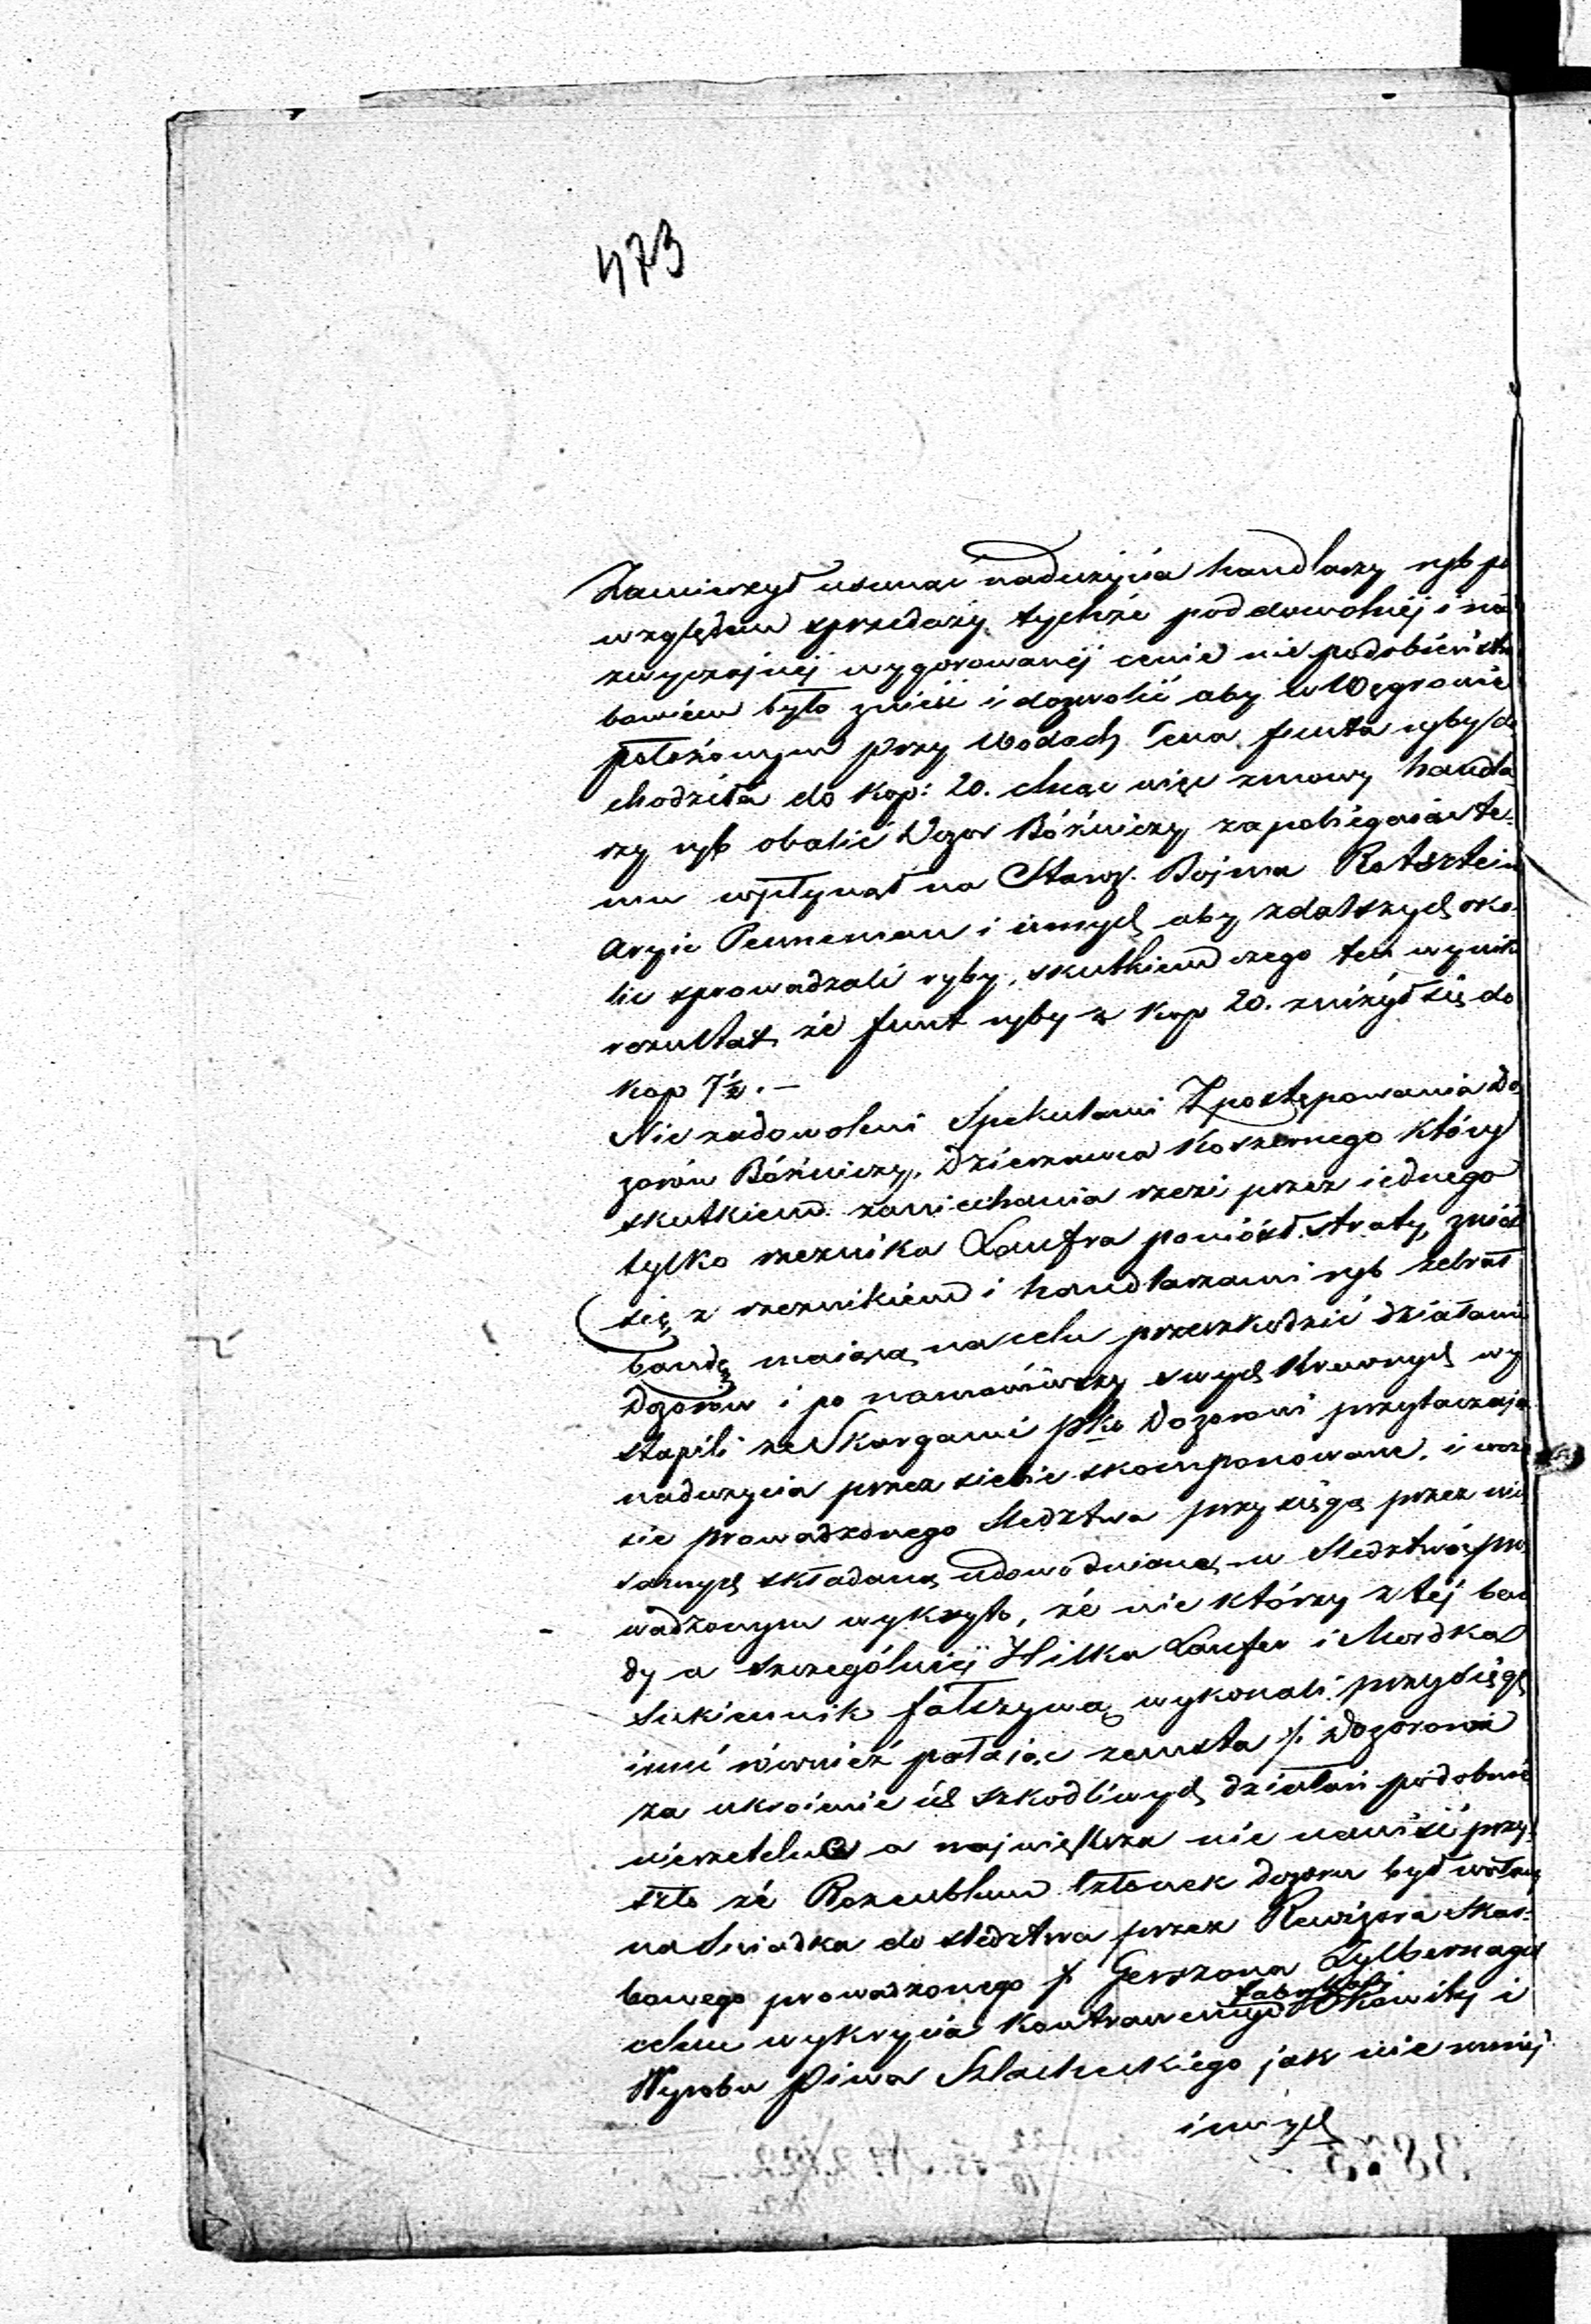 473
Zamierzył usunąć nadużycia handlarzy ryb po
względem sprzedaży tychże pod dowolnéj i nad
zwyczajnéj wygorowanéj cenie niepodobieństw
bowiem było znieść i dozwolić aby w Węgrowie
położonym przy Wodach Cena funta ryby do
chodziła do Kop: 20. chcąc więc zmowy handla
rzy ryb obalić Dozor Bóżniczy zapobiegając te-
mu wpłynął na Starz. Bojma Rotsztein
Aryie Penneman i innych aby z dalszych oko-
lic sprowadzali ryby, skutkiem czego ten wynikł
rezultat że funt ryby z Kop 20. zniżył się do
Kop 7½. —
Nie zadowoleni Spekulanci z postępowania Do
zoru Bóżniczy, Dzierzawca Koszernego który
skutkiem zaniechania rzezi przez iednego
tylko rzeznika Laufra poniósł straty, zniósł
się z rzeznikiem i handlarzami ryb zebrał
bandę maiącą na celu przeszkodzić działani
Dozoru i po namówiwszy swych Krewnych wy
stąpili ze Skargami pko Dozorowi przytaczają
nadużycia przez siebie skomponowane, i w cza
sie prowadzonego śledztwa przysięgą przez nich
samych składaną udowodnione w śledztwie pro
wadzonym wykryto, że nie którzy z téj ban
dy a szczególniéj Hilka Laufer i Mordka
Sukiennik fałszywą wykonali przysięgę
inni również pałając zemstą p. Dozorowi
za ukrócenie ich szkodliwych działań podobnie
nierzetelne a największa nie nawiść przy-
szła że Rozenblum Członek Dozoru był wołany
na Świadka do śledztwa przez Rewizora Skar-
bowego prowadzonego p. Gerszona Zylbernagel
celem wykrycia Kontrawencyi fabrykacyi Okowity i
Wyrobu Piwa Szlacheckiego jak nie mniéj
innych